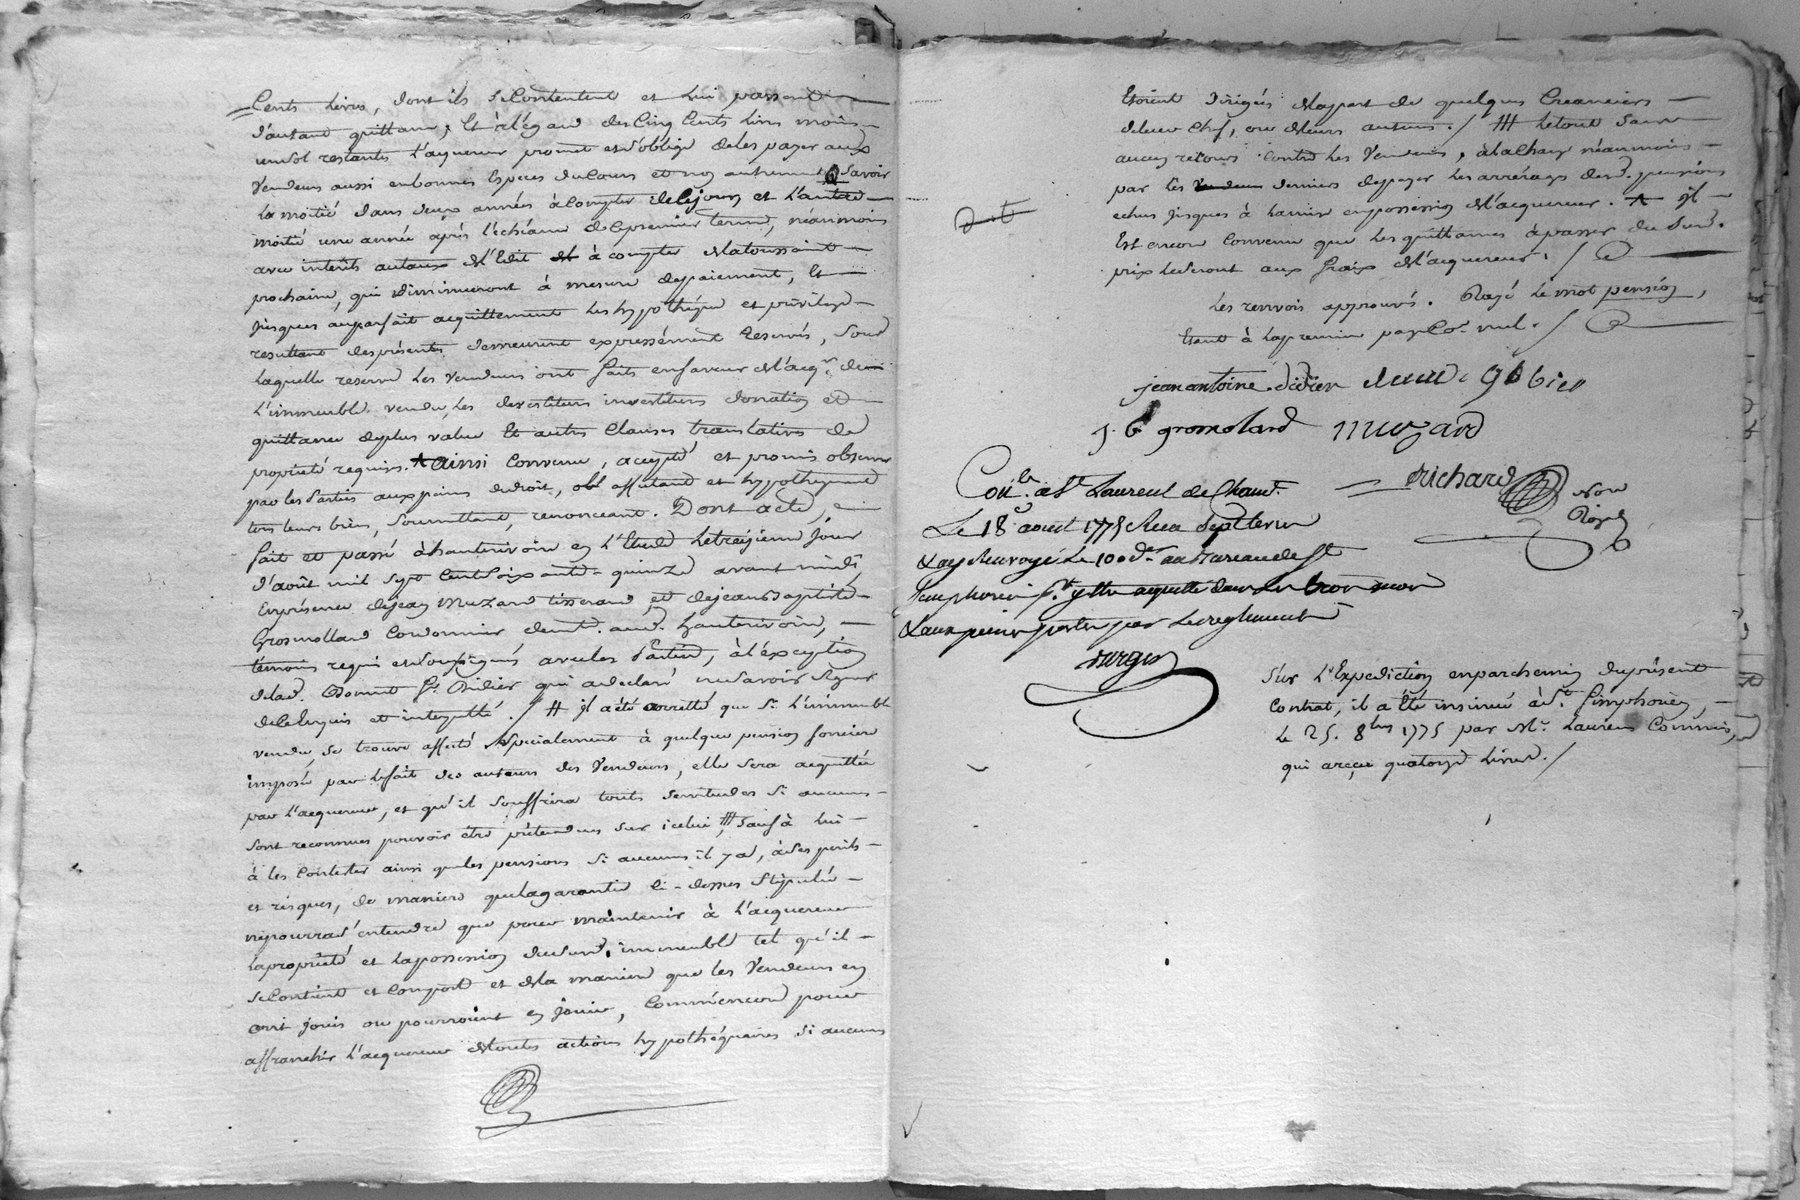 Cents livres, dont ils se Contentent et lui passent
d'autant quittance, Et à l'égard des Cinq Cents livres moins
un sol restants l'acquereur promet et s'oblige de les payer aux
Vendeurs aussi en bonnes Especes du Cours et non autrement Savoir
la moitié dans deux années à Compter de Ce jour et l'autre
moitié une année après l'échéance de Ce premier terme, néanmoins
avec intérêts au taux de l'Edit à compter de la toussaint
prochaine, qui diminueront à mesure de payement, Et
jusques au parfait acquittement les hypothéque et privilege
resultant des présentes demeurent expressément reservés, Sous
laquelle reserve les Vendeurs ont faits en faveur de l'acqr. de
l'immeuble vendu, les devestiture investiture donation et
quittance de plus value Et autres Clauses translatives de
propriété requises. Ainsi Convenu, accepté et promis observer
par les Parties aux peines de droit, obl. affectant et hypothequant
tous leurs biens, Soumettant, renonceant. Dont acte,
fait et passé à hauterivoire en l'Etude le treizieme Jour
d'août mil Sept Cent Soixante-quinze avant midi,
En présence de jean Muzard tisserand et de jean Baptiste
Gromollard Cordonnier dem.t aud. hauterivoire,
témoins requis et Soussignés avec les Parties, à l'éxception
de lad. Bonnet fe. Didier qui a declaré ne Savoir Signer
de Ce Enquis et interpellé ./ # il a été arretté que Si l'immeuble
vendu, Se trouve affecté Specialement à quelque pension fonciere
imposée par le fait des auteurs des Vendeurs, elle Sera acquittée
par l'acquereur, et qu'il Souffrira touts Servitudes Si aucunes
Sont reconnues pouvoir être prétendues Sur icelui, # Sauf à lui
à les Contester ainsi que les pensions Si aucunes il y a, à Ses perils
et risques, de maniere que la garantie Ci-dessus Stipulée
ne pourra S'entendre que pour maintenir à l'acquereur
la propriété et la possession dud. immeuble tel qu'il
Se Contient et Comporte et de la maniere que les Vendeurs en
ont jouis ou pourroient en jouir, Comme encore pour
affranchir l'acquereur de toutes actions hypothéquaires Si aucunes
Etoient dirigées de la part de quelques Creanciers
de leur Chef, ou de leurs auteurs ./ # le tout Sans
aucun retour Contre les Vendeurs, à la Charge néanmoins
par les derniers de payer les arrérages desd. pensions
echus jusques à la mise en possession de l'acquereur. il
Est encore Convenu que les quittances à passer du Susd.
prix Seront aux fraix de l'acquereur ./
les renvois approuvés. Rayé le mot pension,
Etant à la premiere page Co.e nul ./
jean antoine didier
J. B gromolard muzard
Richard
Not.
Royal
Con.lé à St. Laurent de Cham.t
Le 18 aout 1775 Reçu Sept livres
& ay Renvoyé Le 100.e d.er au Bureau de St
Simphorien
& aux peines portées par Les reglements
Durger
Sur l'Expedition en parchemin du présent
Contrat, il a été insinué à St. Simphorien,
le 25. 8bre 1775 par Mr. Laurens Commis,
qui a reçu quatorze livres ./